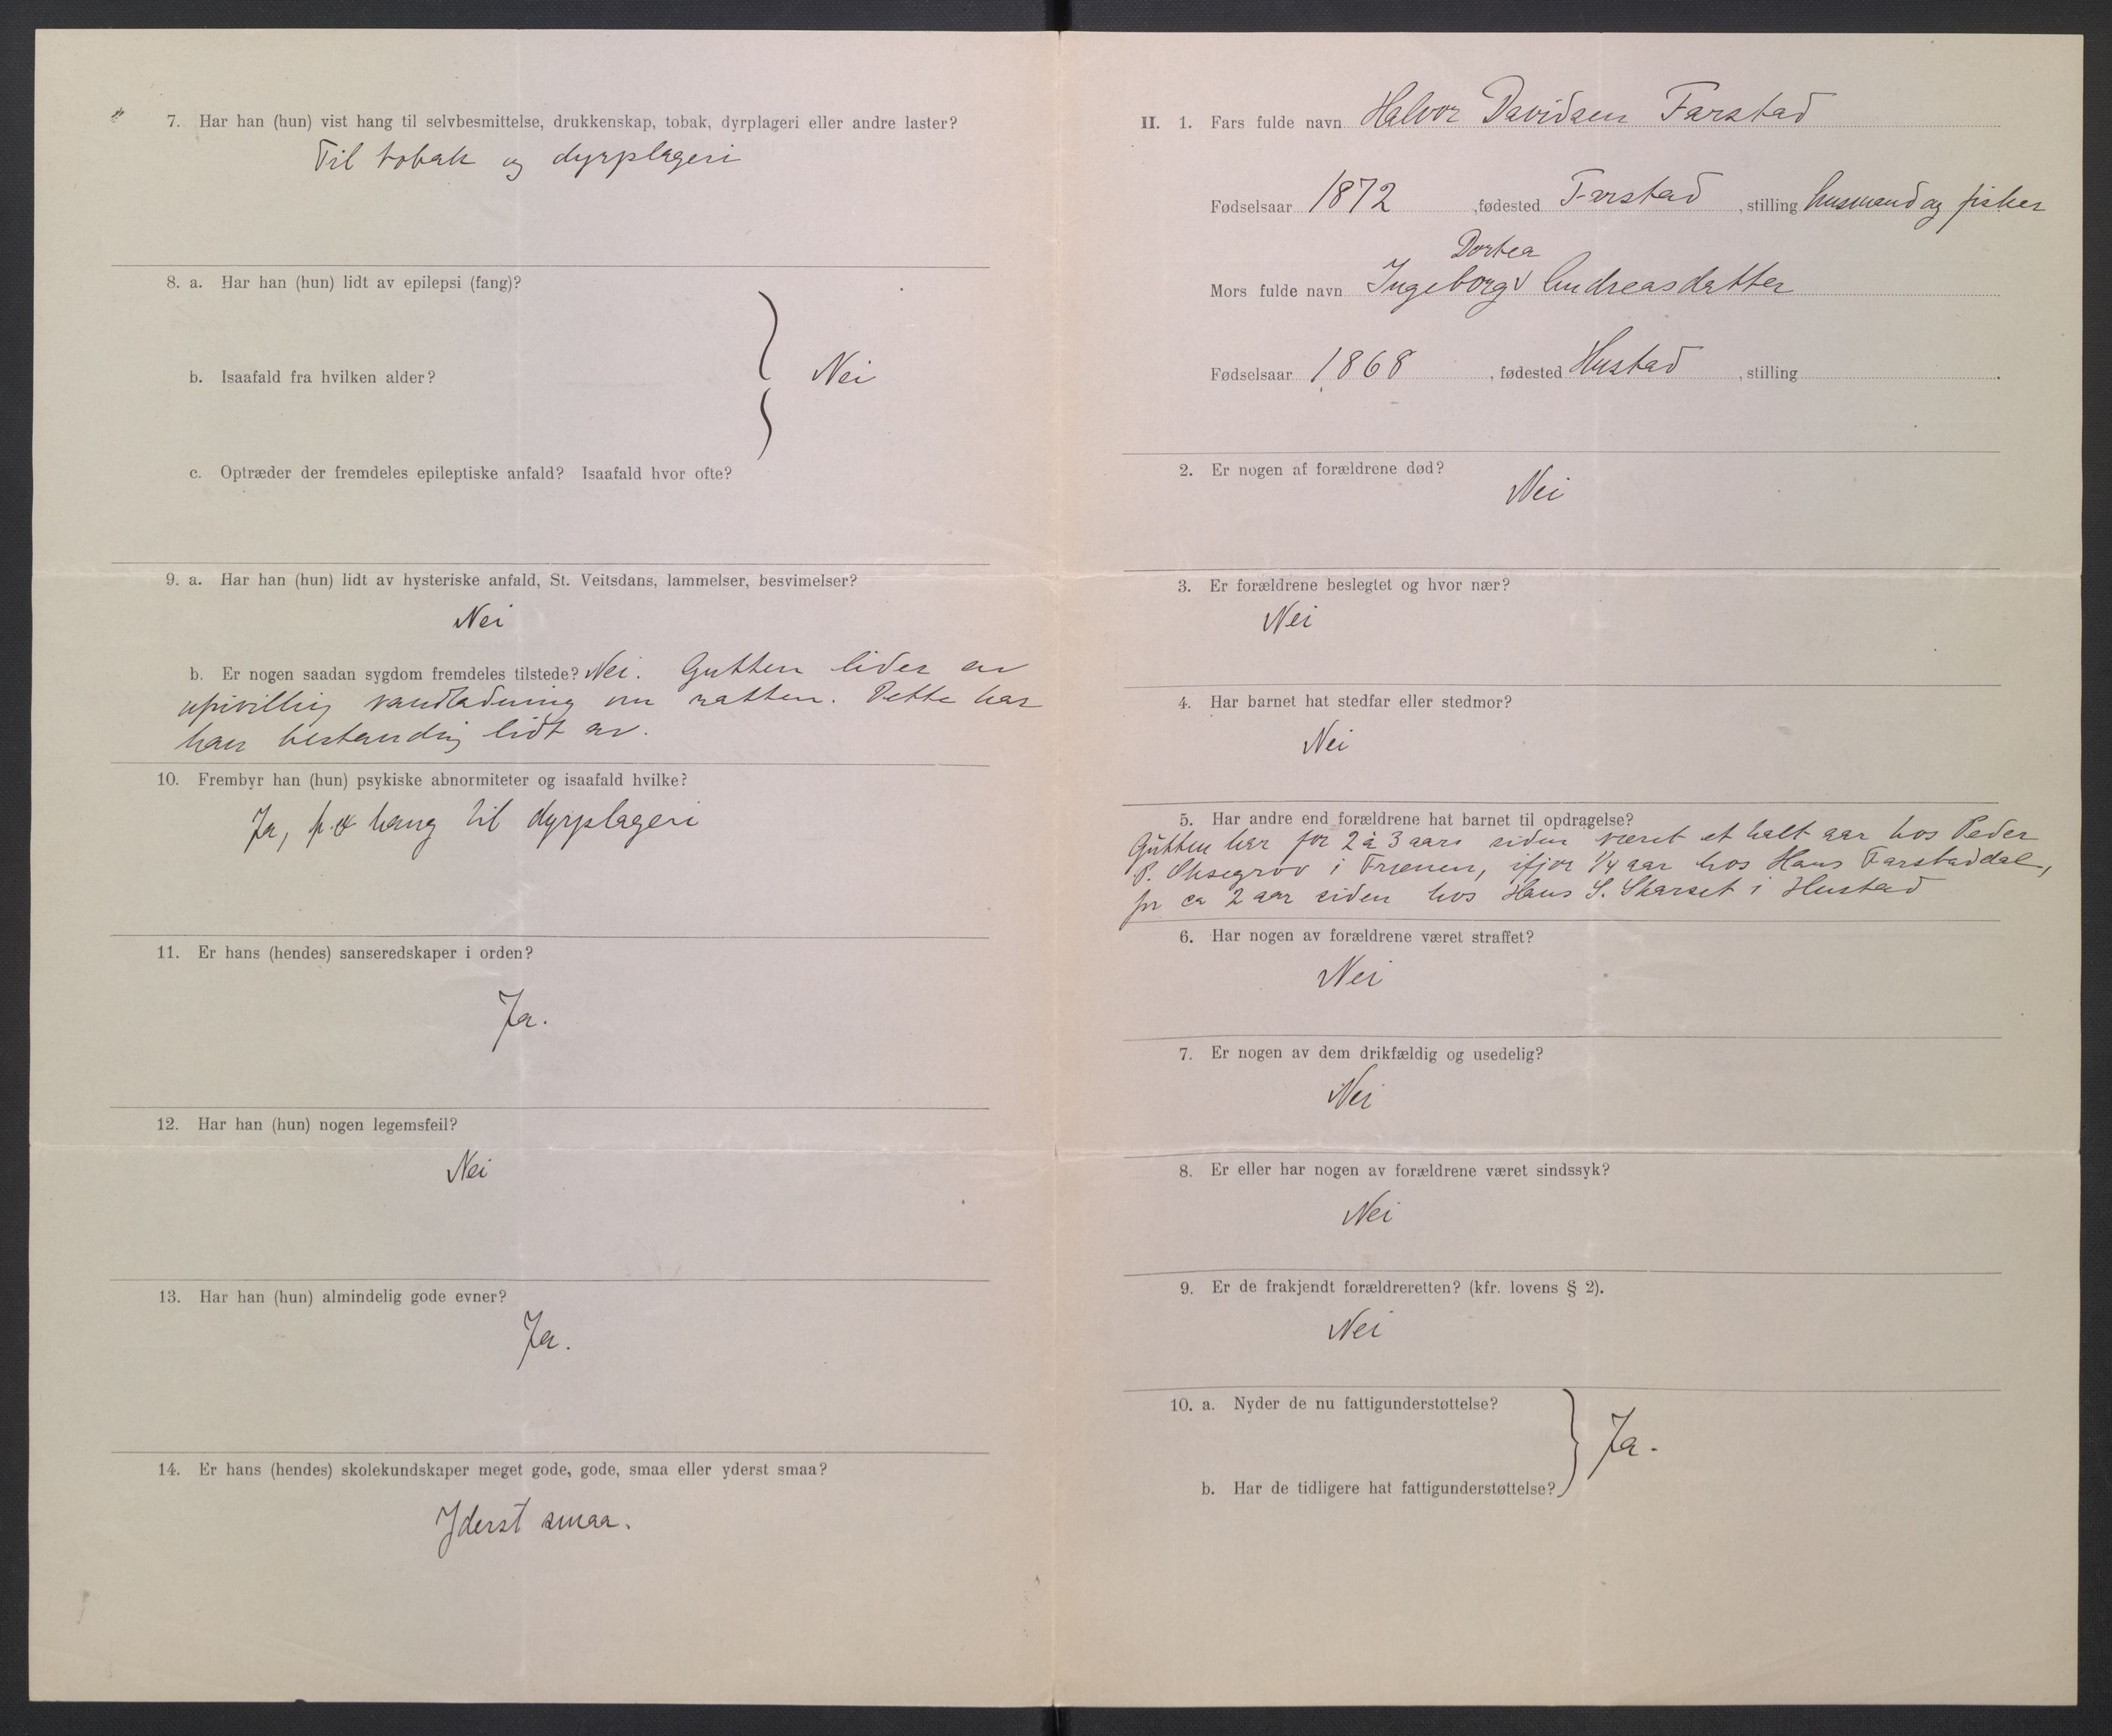 7. Har han (hun) vist hang til selvbesmittelse, drukkenskap, tobak, dyrplageri eller andre laster?
Til tobak og dyrplageri
8. a. Har han (hun) lidt av epilepsi (fang)?
b. Isaafald fra hvilken alder?
Nei
c. Optræder der fremdeles epileptiske anfald? Isaafald hvor ofte?
9. a. Har han (hun) lidt av hysteriske anfald, St. Veitsdans, lammelser, besvimelser?
Nei
b. Er nogen saadan sygdom fremdeles tilstede? Nei. Gutten lider av
ufrivillig vandladning om natten. Dette har
han bestandig lidt av.
10. Frembyr han (hun) psykiske abnormiteter og isaafald hvilke?
Ja, hang til dyrplageri
11. Er hans (hendes) sanseredskaper i orden?
Ja.
12. Har han (hun) nogen legemsfeil?
Nei
13. Har han (hun) almindelig gode evner?
Ja.
14. Er hans (hendes) skolekundskaper meget gode, gode, smaa eller yderst smaa?
Yderst smaa.
II. 1. Fars fulde navn Halvor Davidsen Farstad
Fødselsaar 1872, fødested Farstad, stilling husmand og fisker
Dortea
Mors fulde navn Ingeborg v Andreasdatter
Fødselsaar 1868, fødested Hustad, stilling .
2. Er nogen af forældrene død?
Nei
3. Er forældrene beslegtet og hvor nær?
Nei
4. Har barnet hat stedfar eller stedmor?
Nei
5. Har andre end forældrene hat barnet til opdragelse?
Gutten har for 2 à 3 aar siden været et halt aar hos Peder
P. i Frænen, ifjor 1/4 aar hos Hans Farstaddal,
for ca 2 aar siden hos Hans S. Skarset i Hustad
6. Har nogen av forældrene været straffet?
Nei
7. Er nogen av dem drikfældig og usedelig?
Nei
8. Er eller har nogen av forældrene været sindssyk?
Nei
9. Er de frakjendt forældreretten? (kfr. lovens § 2).
Nei
10. a. Nyder de nu fattigunderstøttelse?
Ja.
b. Har de tidligere hat fattigunderstøttelse?